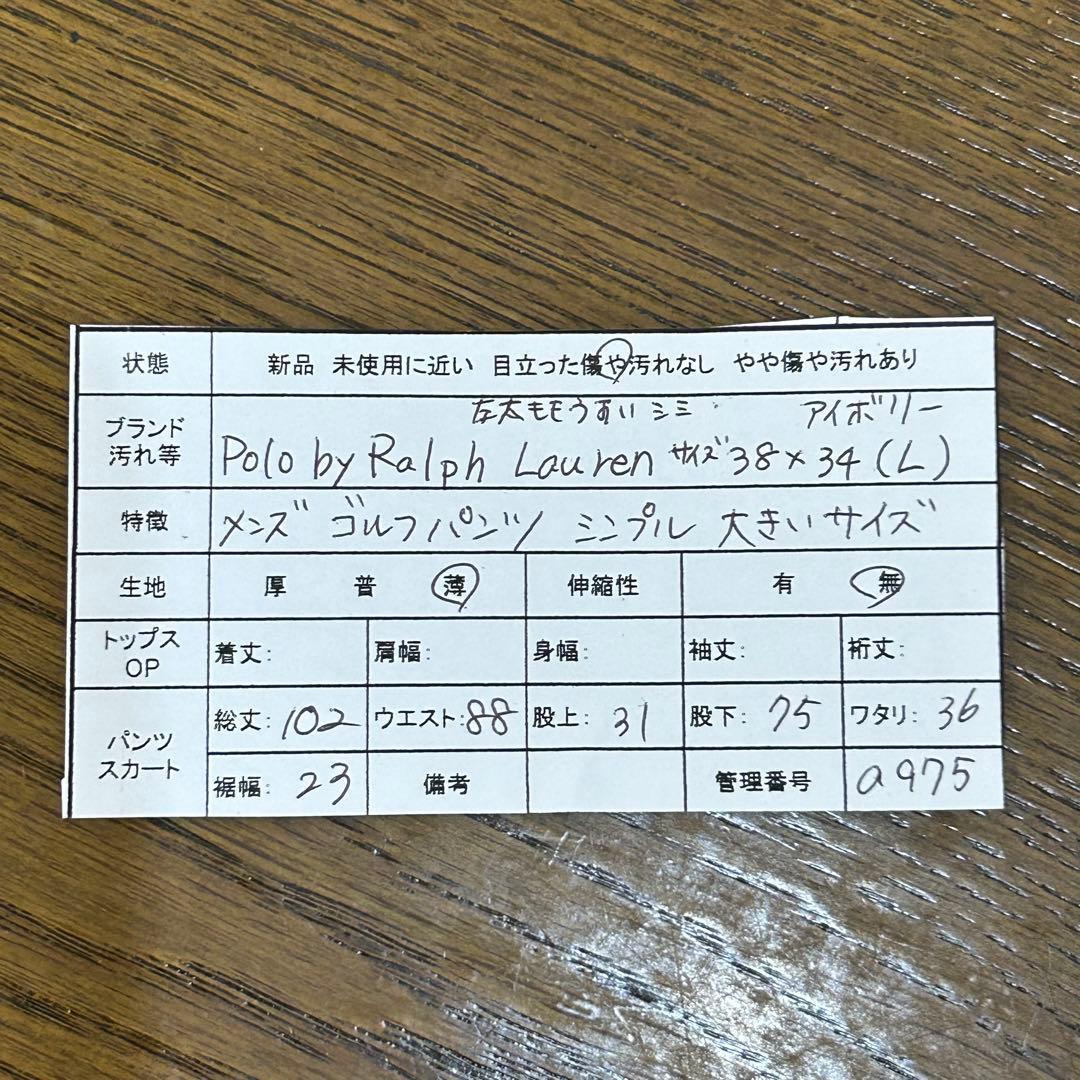 状態 新品 未使用に近い 目立った傷や汚れなし やや傷や汚れあり
ブランド 汚れ等 左太ももうすいシミ. アイボリー
Polo by Ralph Lauren サイズ38×34(L)
特徴 メンズ ゴルフパンツ シンプル 大きいサイズ
生地 厚 普 薄 伸縮性 有 無
トップス OP 着丈: 肩幅: 身幅: 袖丈: 裄丈:
パンツ スカート 総丈: 102 ウエスト: 88 股上: 31 股下: 75 ワタリ: 36
裾幅: 23 備考 管理番号 a975